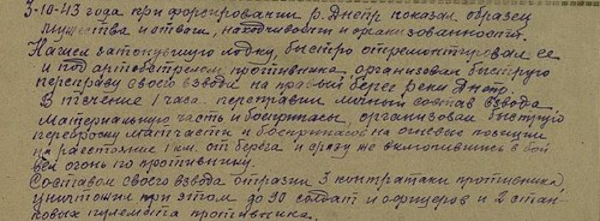 3-10-43 года при форсировании р. Днепр показал образец
мужества и отваги, находчивости и организованности.
Нашел затонувшую лодку, быстро отремонтировал ее
и под артобстрелом противника организовал быструю
переправу своего взвода на правый берег реки Днепр.
В течение 1 часа переправил личный состав взвода,
материальную часть и боеприпасы, организовал быструю
переброску матчасти и боеприпасов на огневые позиции
на расстояние 1 км. от берега и сразу же включившись в бой
вел огонь по противнику.
Составом своего взвода отразил 3 контратаки противника,
уничтожил при этом до 90 солдат и офицеров и 2 стан-
ковых пулемета противника.